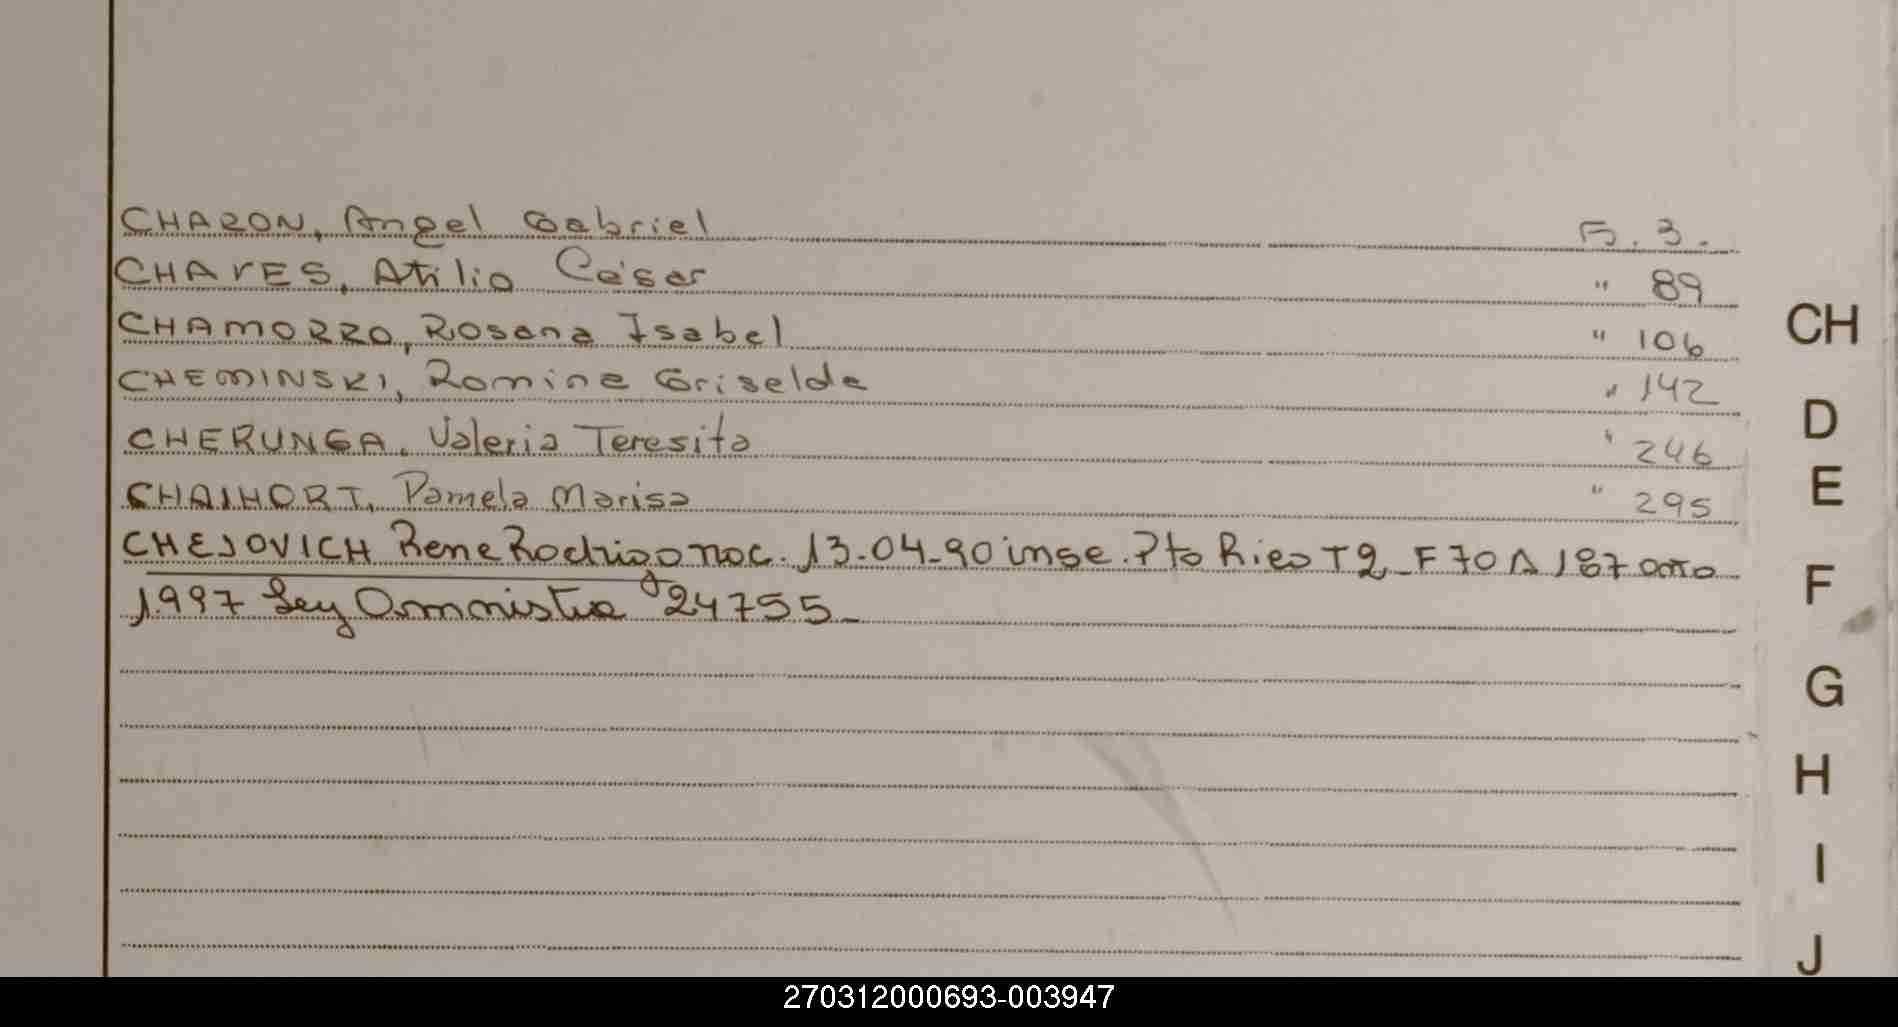 CHARON, Angel Gabriel F. 3.
CHAVES, Atilio César " 89
CHAMORRO, Rosana Isabel " 106
CHEMINSKI, Romina Griselda " 142
CHERUNGA, Valeria Teresita " 246
CHAIHORT, Pamela Marisa " 295
CHEJOVICH Rene Rodrigo nac. 13-04-90 insc. Pto Rico T2-F70A187 año
1997 Ley Amnistia 24755-
CH
D
E
F
G
H
I
J
270312000693-003947